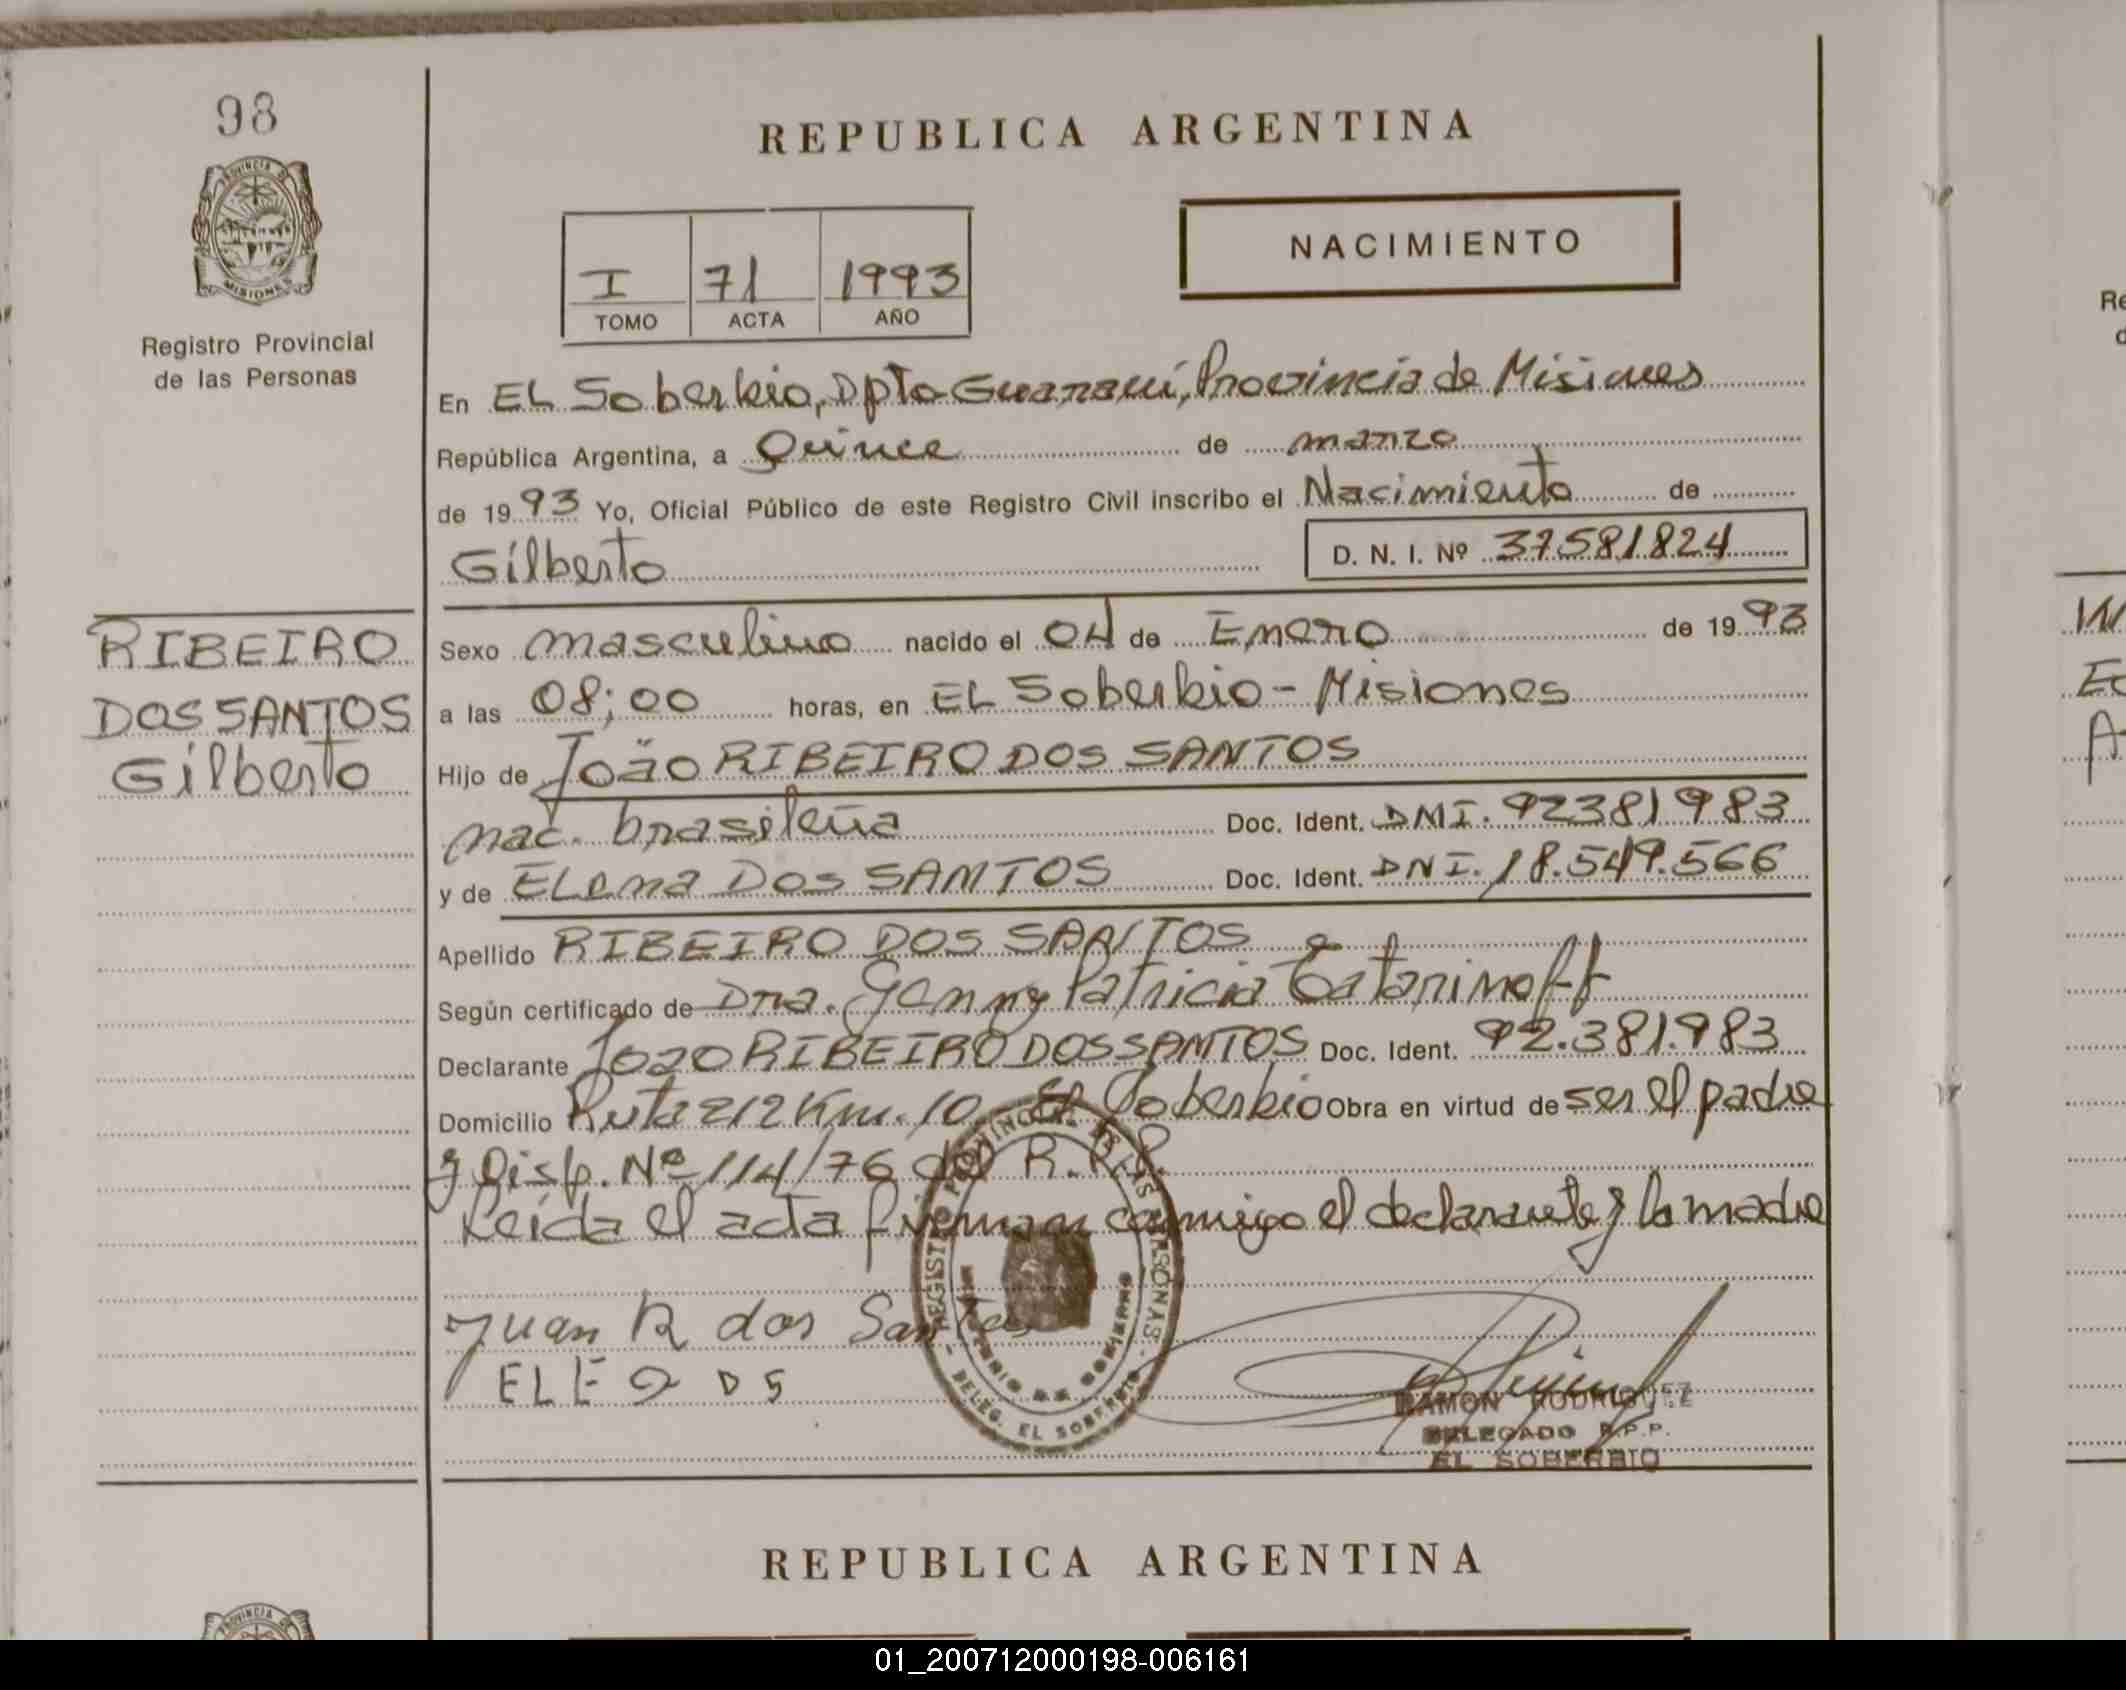 98
PROVINCIA DE
MISIONES
Registro Provincial
de las Personas
RIBEIRO
DOS SANTOS
Gilberto
REPUBLICA ARGENTINA
NACIMIENTO
I 71 1993
TOMO ACTA AÑO
En EL Soberbio, Dpto Guaraní, Provincia de Misiones
República Argentina, a Quince de marzo
de 1993 Yo, Oficial Público de este Registro Civil inscribo el Nacimiento de
Gilberto D. N. I. Nº 37581824
Sexo masculino nacido el 04 de Enero de 1993
a las 08;00 horas, en EL Soberbio - Misiones
Hijo de João RIBEIRO DOS SANTOS
nac. brasileña Doc. Ident. DNI. 92381983
y de ELena Dos SANTOS Doc. Ident. DNI. 18.549.566
Apellido RIBEIRO DOS SANTOS
Según certificado de Dra. Genny Patricia
Declarante Joao RIBEIRO DOS SANTOS Doc. Ident. 92.381.983
Domicilio Ruta 212 Km. 10 El Soberbio Obra en virtud de ser el padre
y Disp. Nº 114/76 del R.P.P.
Leída el acta firman conmigo el declarante y la madre
Juan R dos Santos
ELE DS
REGISTRO PROVINCIAL DE LAS PERSONAS
MINISTERIO DE GOBIERNO
DELEG. EL SOBERBIO
RAMON RODRIGUEZ
DELEGADO R.P.P.
EL SOBERBIO
REPUBLICA ARGENTINA
PROVINCIA DE
01_200712000198-006161